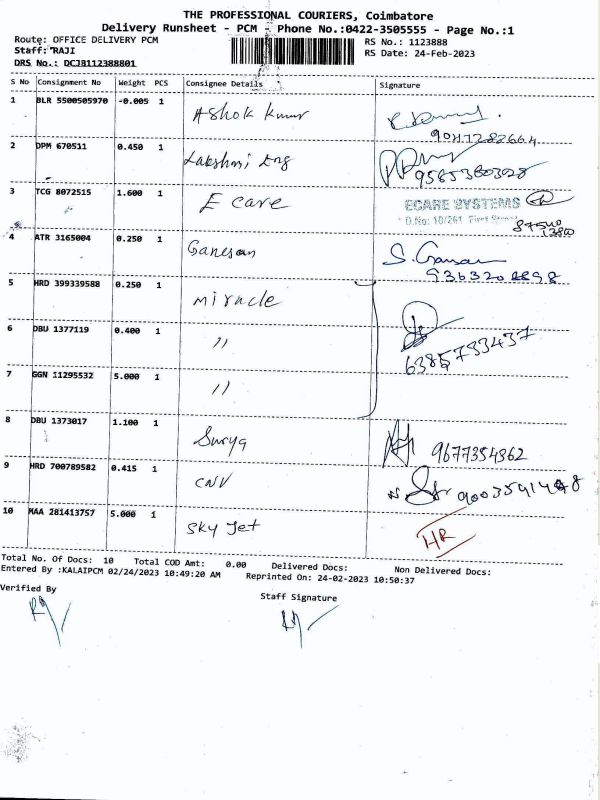 THE PROFESSIONAL COURIERS, Coimbatore
Delivery Runsheet - PCM - Phone No.:0422-3505555 - Page No.:1
Route: OFFICE DELIVERY PCM
RS No.: 1123888
Staff: RAJI
RS Date: 24-Feb-2023
DRS No.: DCJB112388801
S No Consignment No Weight PCS Consignee Details Signature
1 BLR 5500505970 -0.005 1 Ashok Kumar
2 DPM 670511 0.450 1 Lakshmi Eng
3 TCG 8072515 1.600 1 E care ECARE SYSTEMS
D.No: 10/261 First Street
4 ATR 3165004 0.250 1 Ganesan S. Ganesan
5 HRD 399339588 0.250 1 miracle
6 DBU 1377119 0.400 1 " 6385733437
7 GGN 11295532 5.000 1 "
8 DBU 1373017 1.100 1 Surya 9677354362
9 HRD 700789582 0.415 1 CNV
10 MAA 281413757 5.000 1 Sky Jet HR
Total No. Of Docs: 10 Total COD Amt: 0.00 Delivered Docs: Non Delivered Docs:
Entered By :KALAIPCM 02/24/2023 10:49:20 AM Reprinted On: 24-02-2023 10:50:37
Verified By
Staff Signature